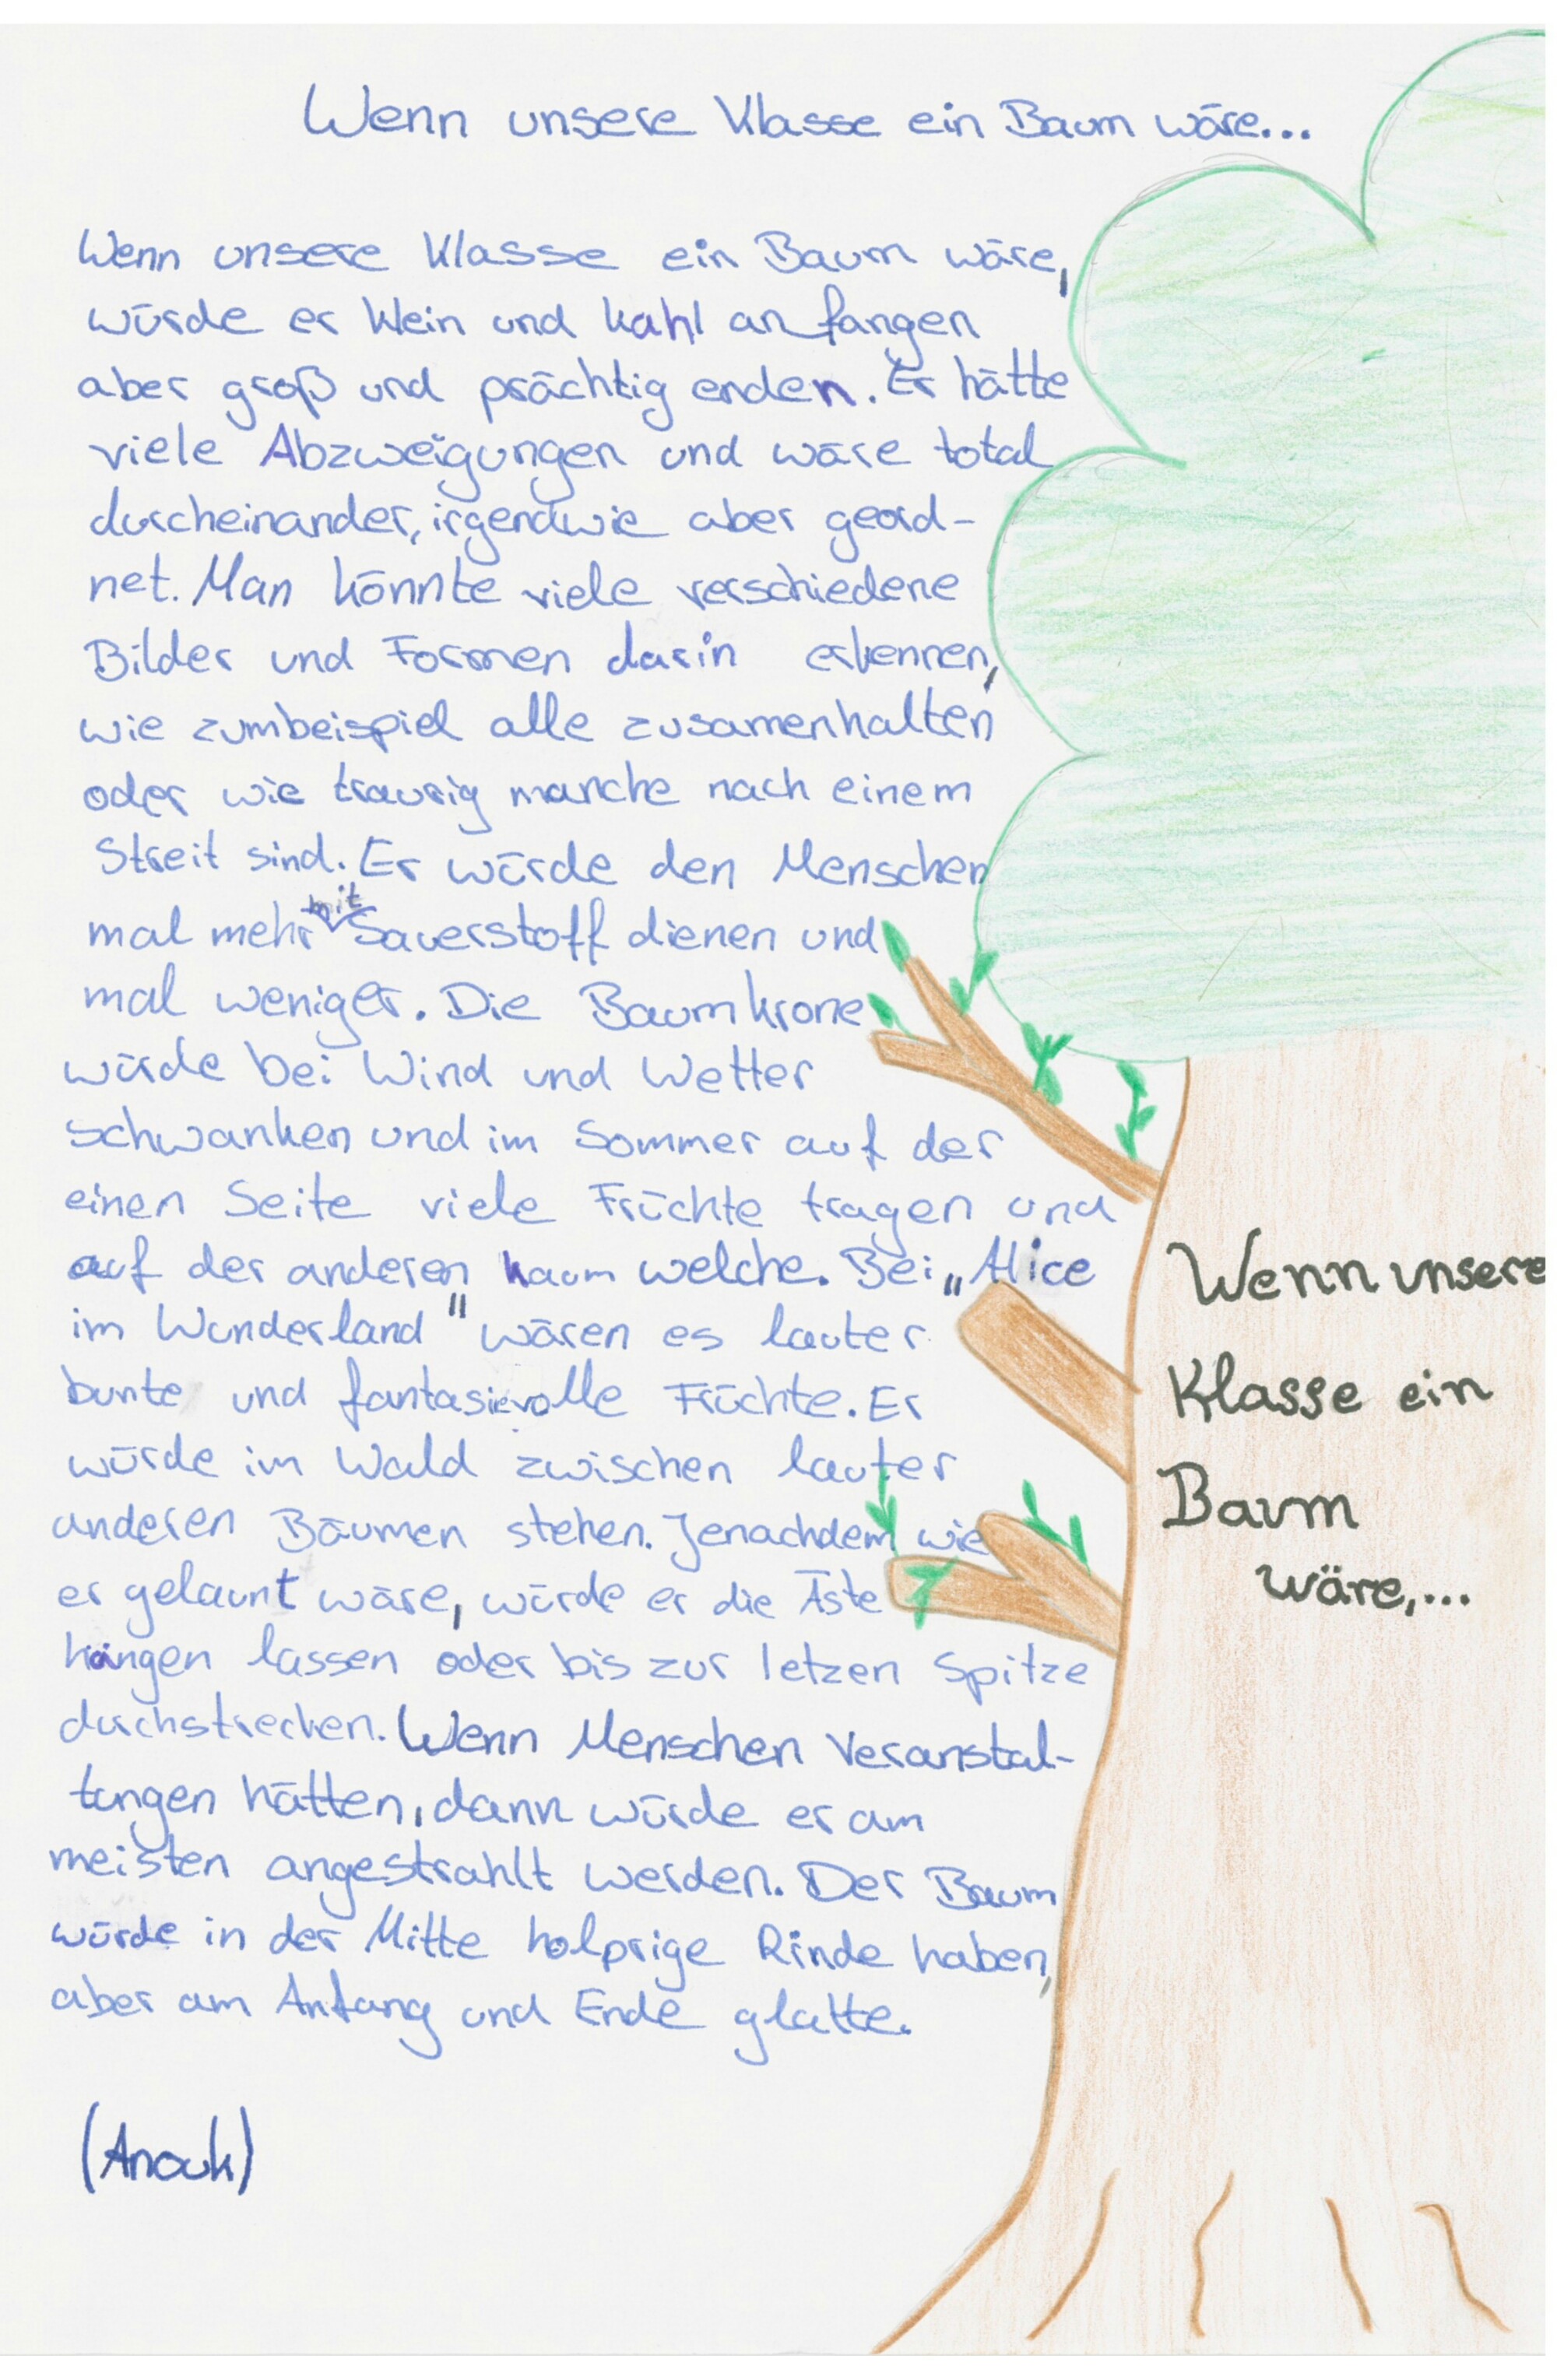 Wenn unsere Klasse ein Baum wäre...
Wenn unsere Klasse ein Baum wäre,
würde er klein und kahl anfangen
aber groß und prächtig enden. Er hätte
viele Abzweigungen und wäre total
durcheinander, irgendwie aber geord-
net. Man könnte viele verschiedene
Bilder und Formen darin erkennen,
wie zumbeispiel alle zusamenhalten
oder wie traurig manche nach einem
Streit sind. Er würde den Menschen
mal mehr mit Sauerstoff dienen und
mal weniger. Die Baumkrone
würde bei Wind und Wetter
schwanken und im Sommer auf der
einen Seite viele Früchte tragen und
auf der anderen kaum welche. Bei „Alice
im Wunderland" wären es lauter
bunte und fantasievolle Früchte. Er
würde im Wald zwischen lauter
anderen Bäumen stehen. Jenachdem wie
er gelaunt wäre, würde er die Äste
hängen lassen oder bis zur letzen Spitze
durchstrecken. Wenn Menschen Veranstal-
tungen hätten, dann würde er am
meisten angestrahlt werden. Der Baum
würde in der Mitte holprige Rinde haben,
aber am Anfang und Ende glatte.
(Anouk)
Wenn unsere
Klasse ein
Baum
wäre,...